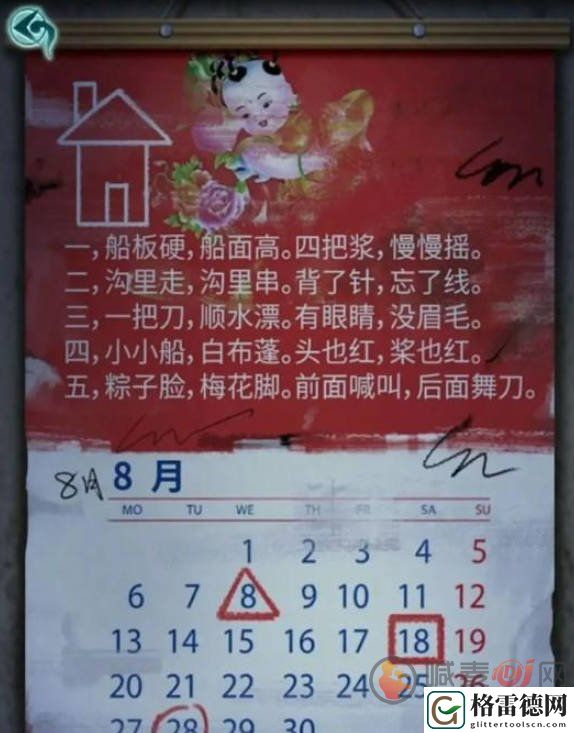 一，船板硬，船面高。四把浆，慢慢摇。
二，沟里走，沟里串。背了针，忘了线。
三，一把刀，顺水漂。有眼睛，没眉毛。
四，小小船，白布蓬。头也红，桨也红。
五，粽子脸，梅花脚。前面喊叫，后面舞刀。
8月 8 月
MO TU WE TH FR SA SU
1 2 3 4 5
6 7 8 9 10 11 12
13 14 15 16 17 18 19
20 21 22 23 24 25 26
27 28 29 30
喊麦DJ网
格雷德网
glittertoolscn.com